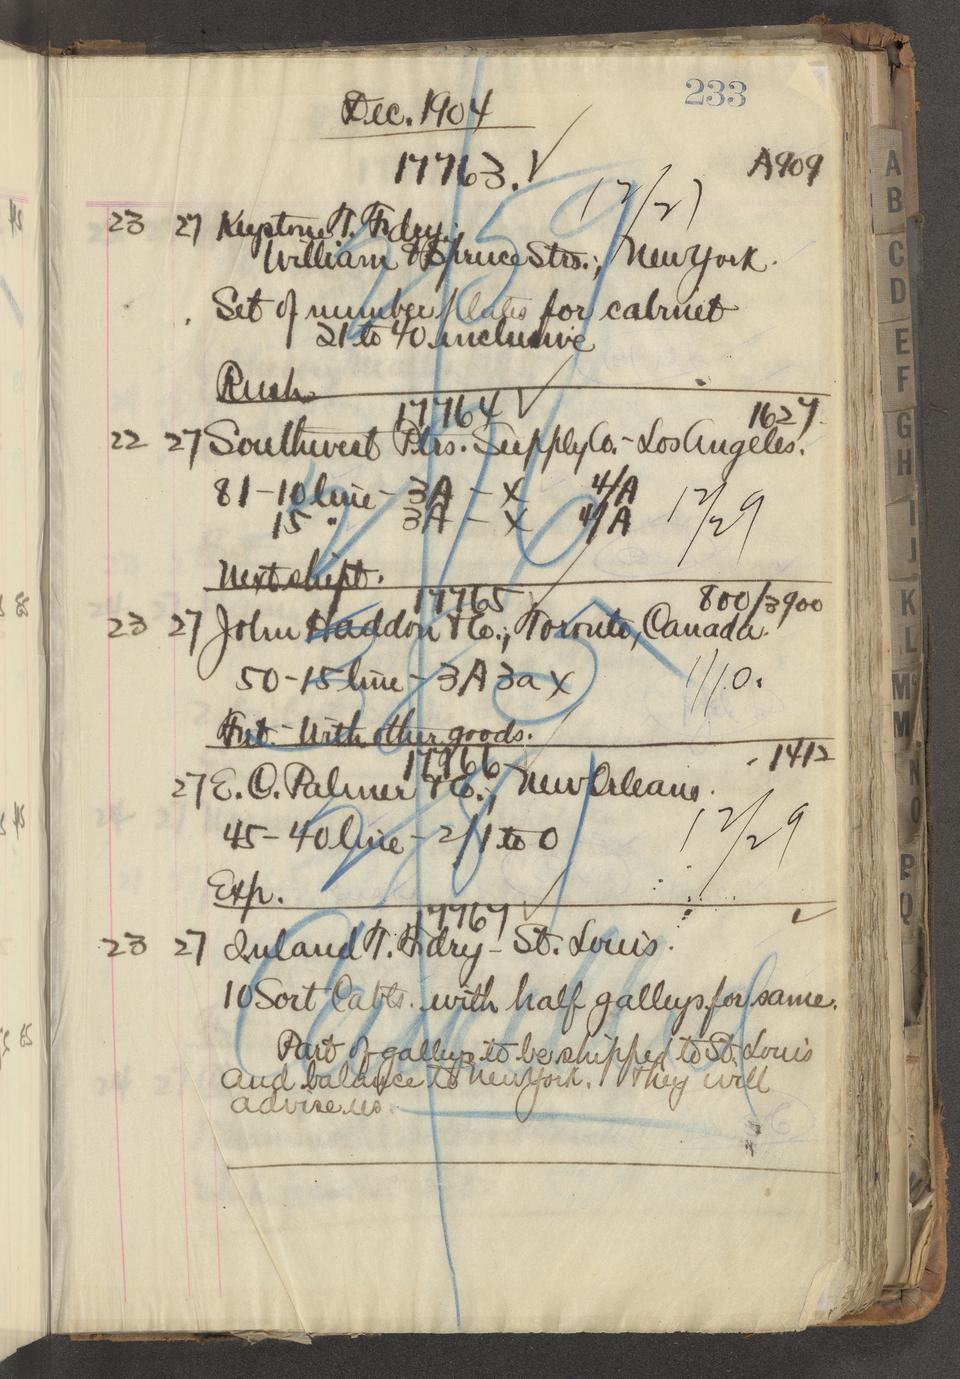 233
Dec. 1904
17763. ✓ A909
12/27
23 27 Keystone T. Fdry.
William & Spruce Strs.; New York.
Set of number plates for cabinet
21 to 40 inclusive
Rush.
17764 ✓ 1627
22 27 Southwest Ptrs. Supply Co. - Los Angeles.
81 - 10 line - 3A - X 4/A
15 " 3A - X 4/A
12/29
Next shipt.
17765 800/3900
23 27 John Haddon & Co.; Toronto, Canada.
50 - 15 line - 3A 3a X 1/10.
Frt. - With other goods.
17766 1412
27 E. C. Palmer & Co.; New Orleans.
45 - 40 line - 2/1 to 0 12/29
Exp.
17767 ✓
23 27 Inland T. Fdry - St. Louis.
10 Sort Cabts. with half galleys for same.
Part of galleys to be shipped to St. Louis
and balance to New York. They will
advise us.
A
B
C
D
E
F
G
H
I
J
K
L
Mc
M
N
O
P
Q